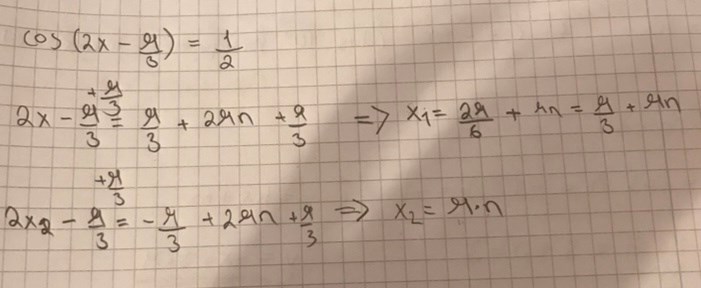 cos (2x - π/3) = 1/2
+π/3
2x - π/3 = π/3 + 2πn + π/3 => x₁ = 2π/6 + πn = π/3 + πn
+π/3
2x₂ - π/3 = -π/3 + 2πn + π/3 => x₂ = π·n